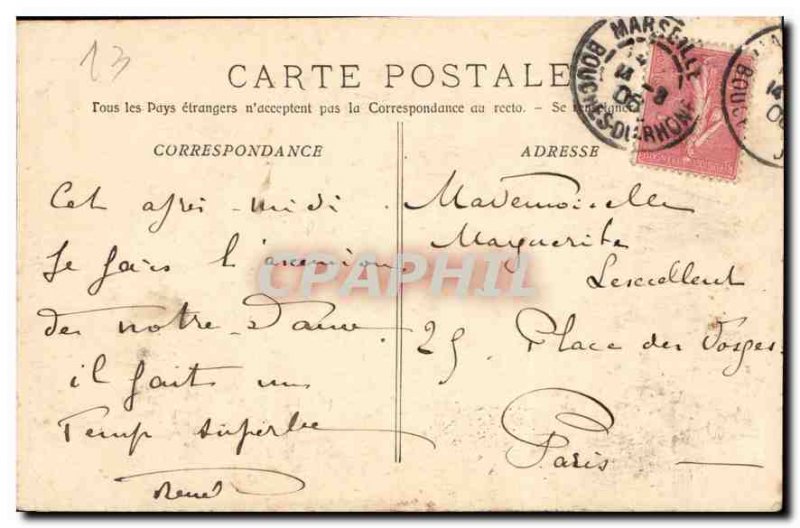 13
CARTE POSTALE
Tous les Pays étrangers n'acceptent pas la Correspondance au recto. - Se
CORRESPONDANCE
ADRESSE
MARSEILLE
14 -8
06
BOUCHES-DU-RHONE
Cet après-midi
Je fais l'ascension
de Notre-Dame.
il fait un
Temps superbe
René
Mademoiselle
Marguerite
25, Place des Vosges
Paris
CPAPHIL